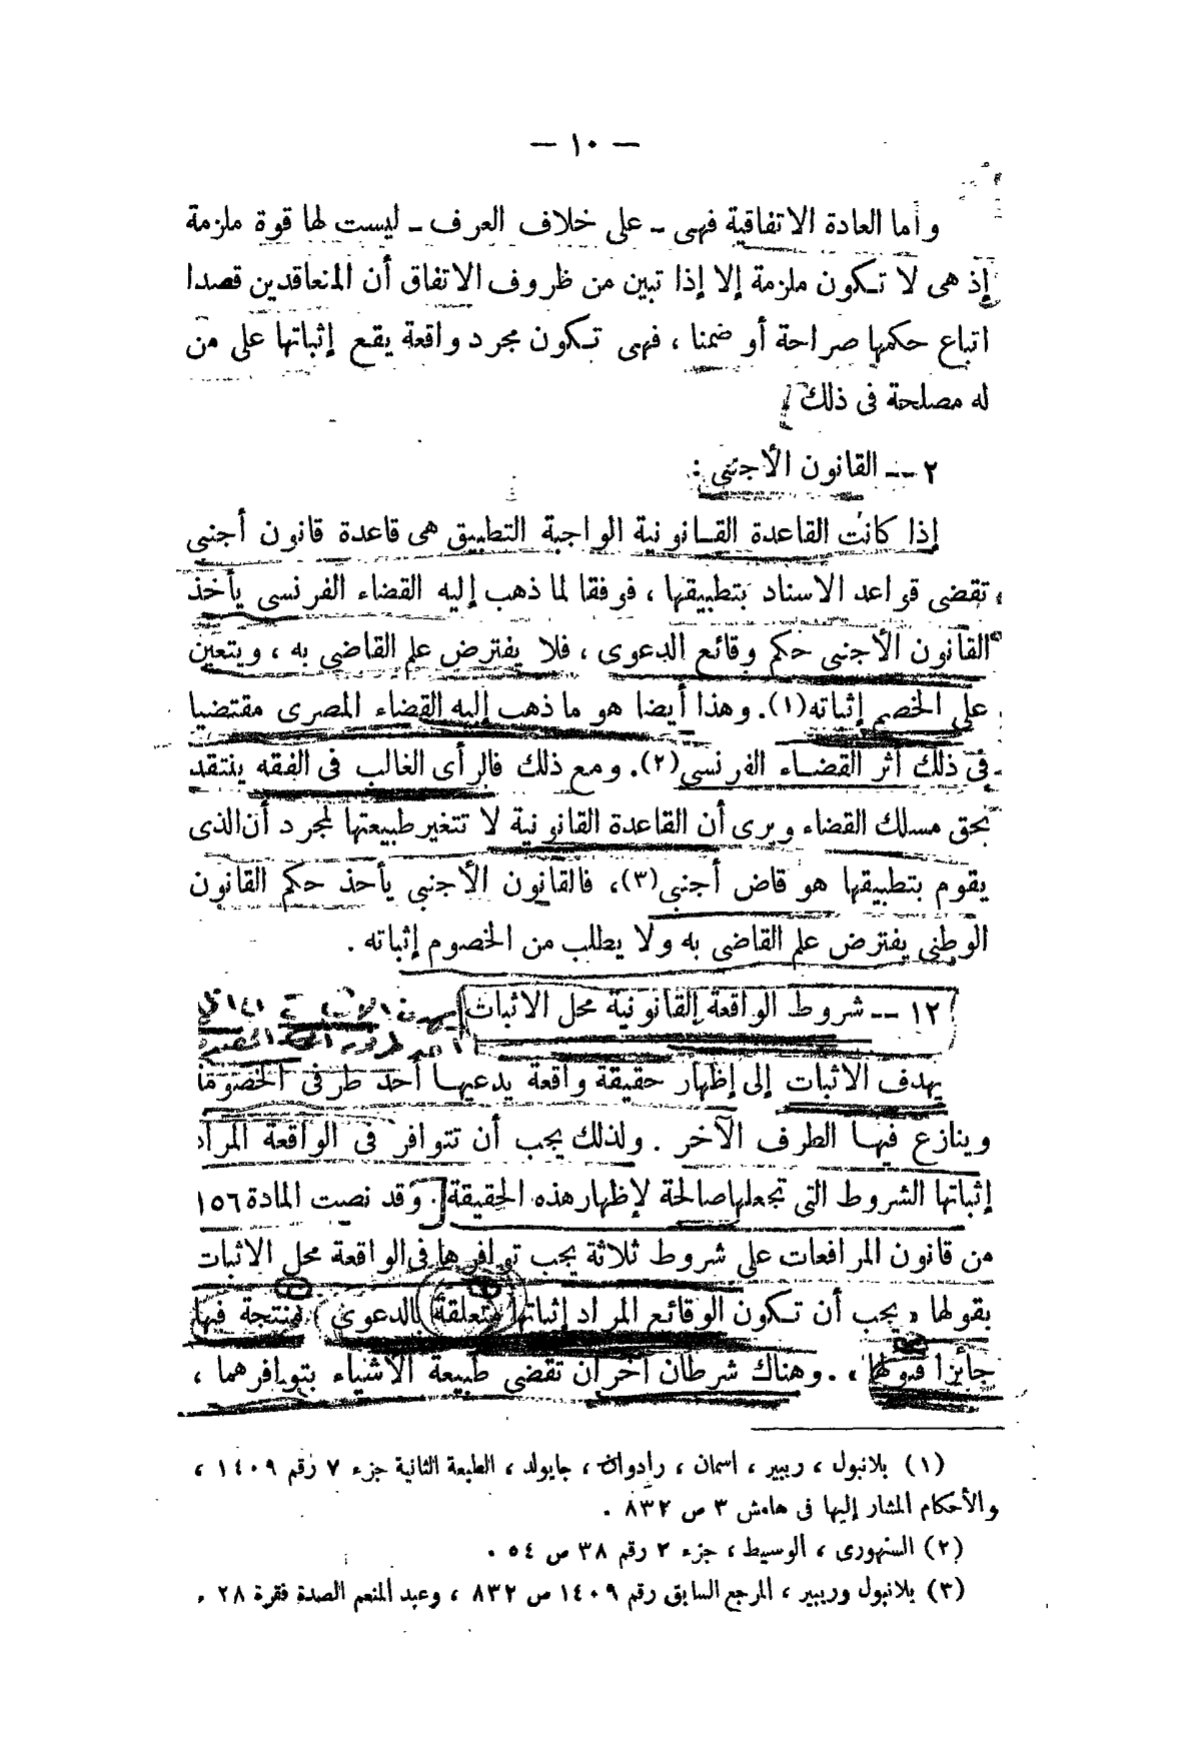 — ١٠ —
وأما العادة الاتفاقية فهى ــ على خلاف العرف ــ ليست لها قوة ملزمة
إذ هى لا تكون ملزمة إلا إذا تبين من ظروف الاتفاق أن المتعاقدين قصدا
اتباع حكمها صراحة أو ضمنا ، فهى تكون مجرد واقعة يقع إثباتها على من
له مصلحة فى ذلك .
٢ ــ القانون الأجنبى :
إذا كانت القاعدة القانونية الواجبة التطبيق هى قاعدة قانون أجنبى
تقضى قواعد الاسناد بتطبيقها ، فوفقا لما ذهب إليه القضاء الفرنسى يأخذ
القانون الأجنبى حكم وقائع الدعوى ، فلا يفترض علم القاضى به ، ويتعين
على الخصم إثباته(١). وهذا أيضا هو ما ذهب إليه القضاء المصرى مقتضيا
فى ذلك أثر القضاء الفرنسى(٢). ومع ذلك فالرأى الغالب فى الفقه ينتقد
بحق مسلك القضاء ويرى أن القاعدة القانونية لا تتغير طبيعتها لمجرد أن الذى
يقوم بتطبيقها هو قاض أجنبى(٣)، فالقانون الأجنبى يأخذ حكم القانون
الوطنى يفترض علم القاضى به ولا يطلب من الخصوم إثباته .
١٢ ــ شروط الواقعة القانونية محل الاثبات
يهدف الاثبات إلى إظهار حقيقة واقعة يدعيها أحد طرفى الخصومة
وينازع فيها الطرف الآخر . ولذلك يجب أن تتوافر فى الواقعة المراد
إثباتها الشروط التى تجعلها صالحة لإظهار هذه الحقيقة . وقد نصت المادة ١٥٦
من قانون المرافعات على شروط ثلاثة يجب توافرها فى الواقعة محل الاثبات
بقولها « يجب أن تكون الوقائع المراد إثباتها متعلقة بالدعوى منتجة فيها
جائزا قبولها » . وهناك شرطان آخران تقضى طبيعة الأشياء بتوافرهما ،
(١) بلانيول ، ريبير ، اسمان ، رادوان ، جابولد ، الطبعة الثانية جزء ٧ رقم ١٤٠٩ ،
والأحكام المشار إليها فى هامش ٣ ص ٨٣٢ .
(٢) السنهورى ، الوسيط ، جزء ٢ رقم ٣٨ ص ٥٤ .
(٣) بلانيول وريبير ، المرجع السابق رقم ١٤٠٩ ص ٨٣٢ ، وعبد المنعم الصدة فقرة ٢٨ .